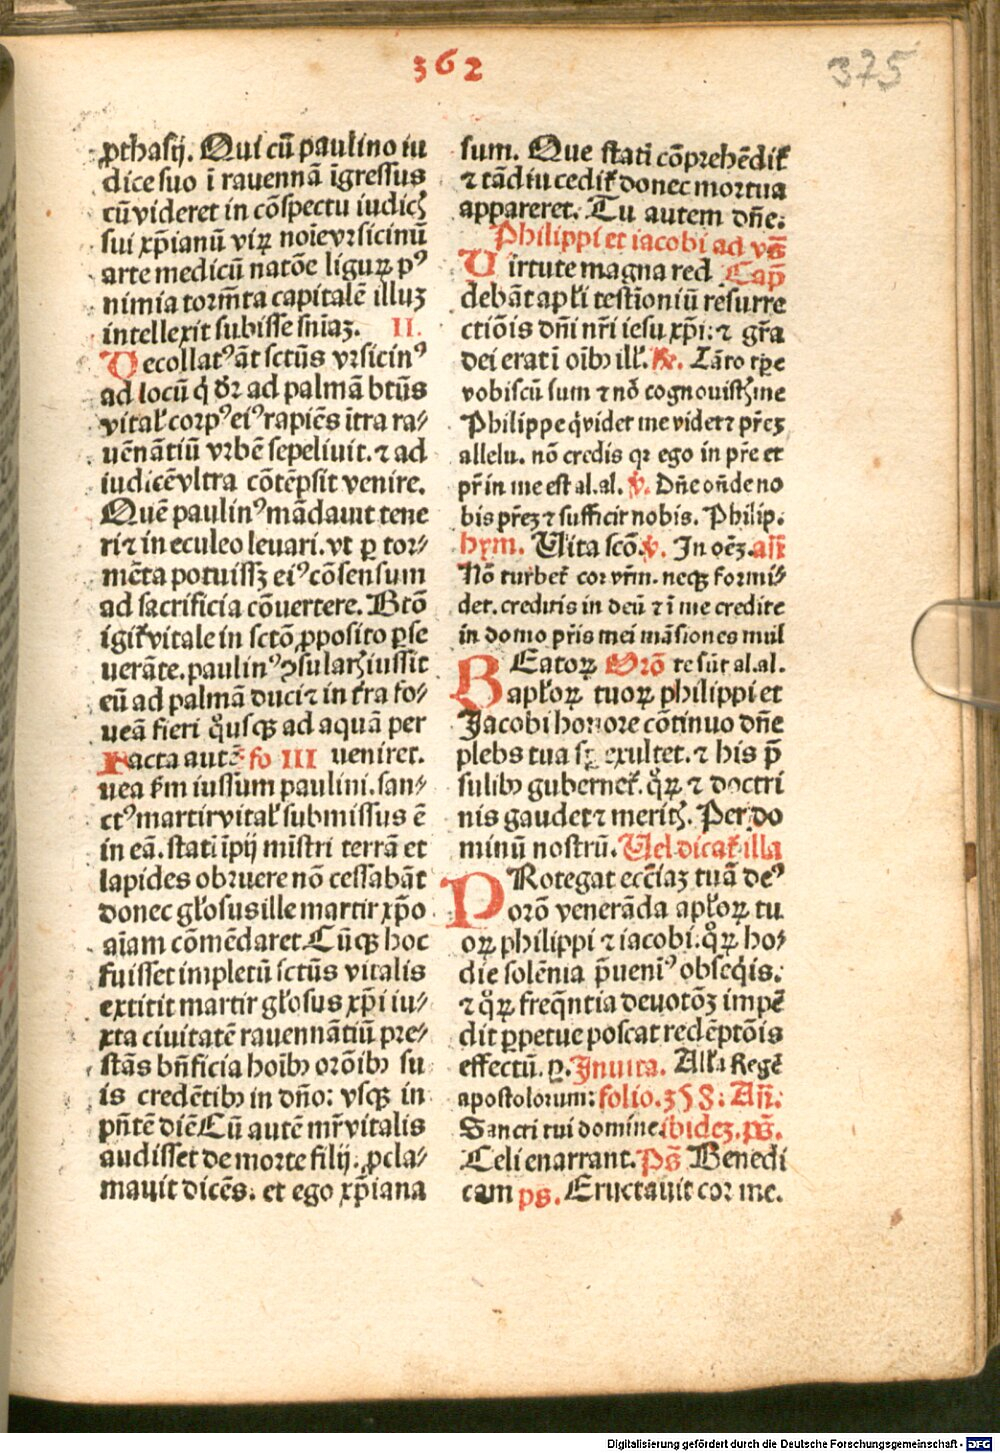 362
375
ꝓthasij. Qui cū paulino iu
dice suo ī rauennā īgressus
cū videret in cōspectu iudicꝭ
sui xp̄ianū viꝝ noīe vrsicinū
arte medicū natōe liguꝝ pꝰ
nimia torm̄ta capitalē illuꝫ
intellexit subisse sn̄iaꝫ. II.
Decollatꝰ āt sctūs vrsicinꝰ
ad locū q̇ dr̄ ad palmā btūs
vital̓ corpꝰ eiꝰ rapiēs ītra ra⸗
uēnātiū vrbē sepeliuit. ⁊ ad
iudicē vltra cōtēpsit venire.
Quē paulinꝰ mādauit tene
ri ⁊ in eculeo leuari. vt ꝑ tor⸗
mēta potuissꝫ eiꝰ cōsensum
ad sacrificia cōuertere. Btō
igit̉ vitale in sctō ꝓposito ꝑse
uerāte. paulinꝰ ꝯsularꝭ iussit
eū ad palmā duci ⁊ in t̉ra fo⸗
ueā fieri qͦusqꝫ ad aquā per
Facta autē fo III ueniret.
uea f̓m iussum paulini. san⸗
ctꝰ martir vital̓ submissus ē
in eā. statī ip̄ij mīstri terrā et
lapides obruere nō cessabāt
donec gl̓osus ille martir xp̄o
aīam cōmēdaret Cūqꝫ hoc
fuisset impletū sctūs vitalis
extitit martir gl̓osus xp̄i iu⸗
xta ciuitatē rauennātiū pre⸗
stās bn̄ficia hoībꝰ orōibꝰ su
is credētibꝰ in dn̄o: vsqꝫ in
pn̄tē diē Cū autē mr̄ vitalis
audisset de morte filij. ꝓcla⸗
mauit dicēs. et ego xp̄iana
sum. Que statī cōprehēdit̉
⁊ tādiu cedit̉ donec mortua
appareret. Tu autem dn̄e.
Philippi et iacobi ad vs̄
Uirtute magna red Cap̄
debāt apl̓i testīoniū resurre
ctiōis dn̄i nr̄i iesu xp̄i: ⁊ gr̄a
dei erat ī oībꝰ ill̓. ℟. Tāto tp̄e
vobiscū sum ⁊ nō cognouistꝭ me
Philippe q̇ videt me videt ⁊ pr̄eꝫ
allelu. nō credis qꝛ ego in pr̄e et
pr̄ in me est al. al. ℣. Dn̄e on̄de no
bis pr̄eꝫ ⁊ sufficit nobis. Philip.
hym. Vita scō. ℣. In oēꝫ. an̄
Nō turbet̉ cor vr̄m. neqꝫ formi⸗
det. creditis in deū ⁊ ī me credite
in domo pr̄is mei māsiones mul
BEatoꝝ Orō te sūt al. al.
apl̓oꝝ tuoꝝ philippi et
Jacobi honore cōtinuo dn̄e
plebs tua exultet. ⁊ his p̄
sulibꝰ gubernet̉. qͦꝝ ⁊ doctri
nis gaudet ⁊ meritꝭ. Per do
minū nostrū. Vel dicat̉ illa
PRotegat eccīaꝫ tuā deꝰ
orō venerāda apl̓oꝝ tu
oꝝ philippi ⁊ iacobi. qͦꝝ ho⸗
die solēnia p̄uenīꝰ obseq̇is.
⁊ qͦꝝ freq̄ntia deuotōꝫ impē
dit ꝑpetue poscat redēptōis
effectū. ꝑ. Inuita. All̓a Regē
apostolorum: folio. 358. An̄.
Sancti tui domine. ibideꝫ. ps̄.
Celi enarrant. Ps̄ Benedi
cam ps. Eructauit cor me.
Digitalisierung gefördert durch die Deutsche Forschungsgemeinschaft - DFG